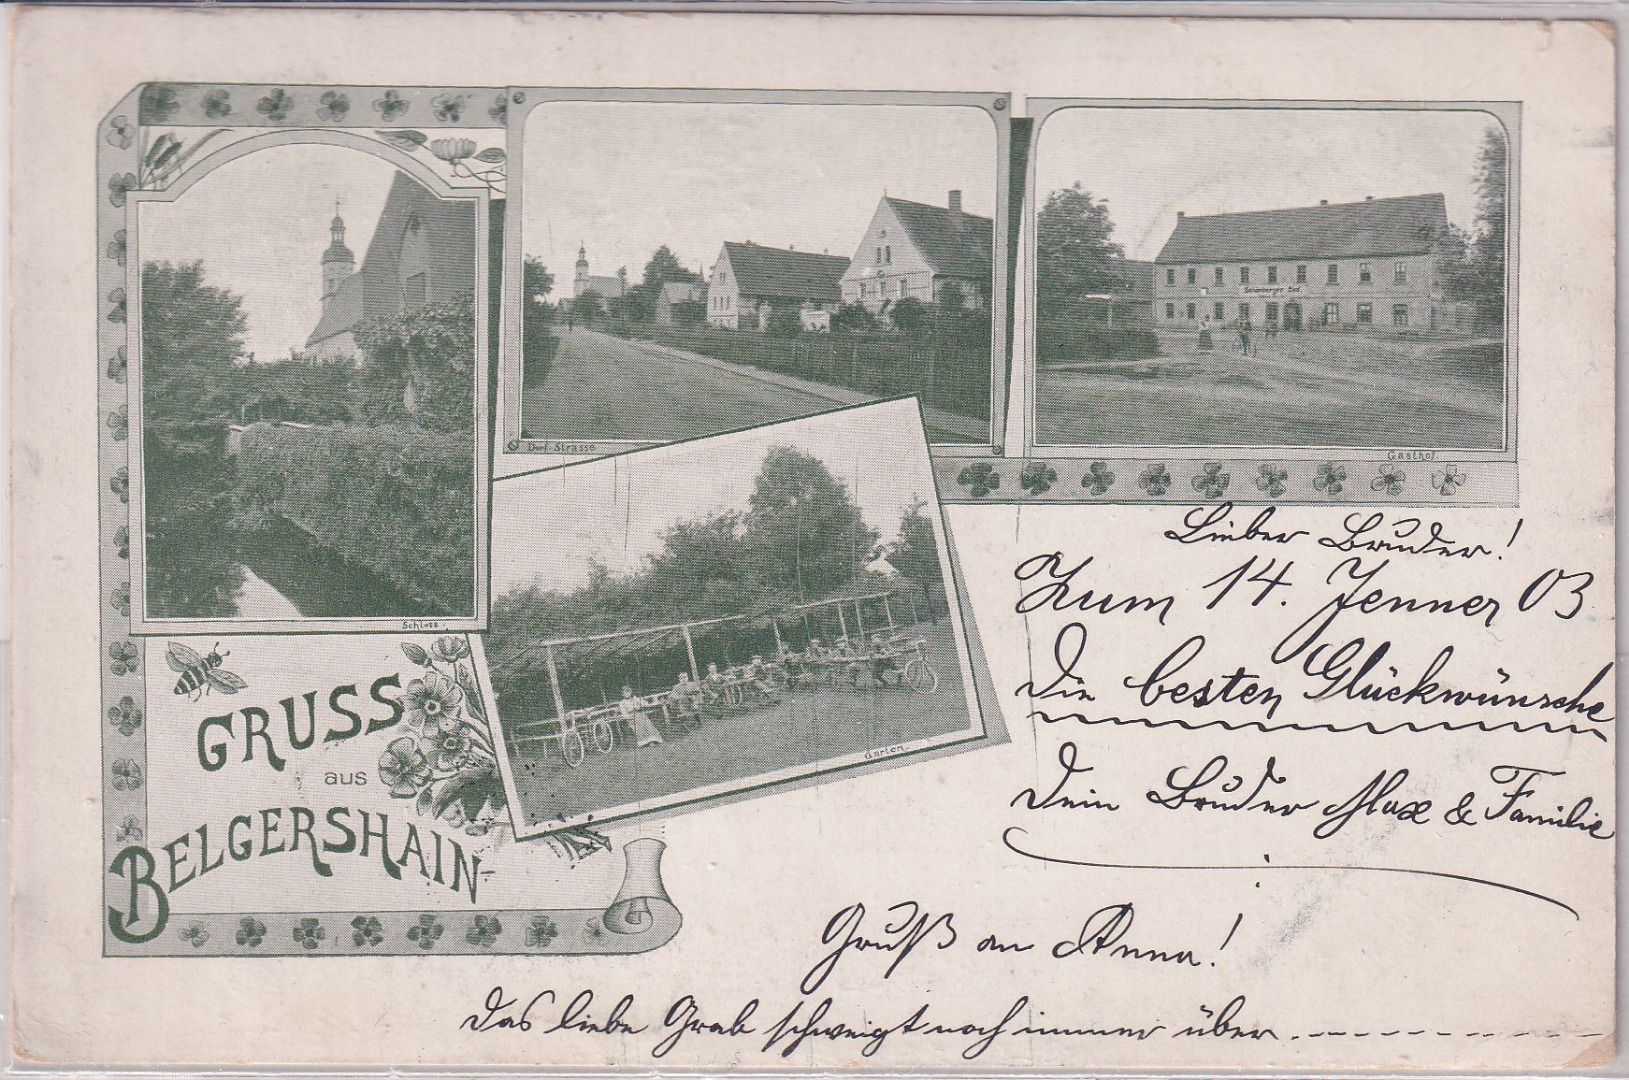 Schloss.
Dorf-Strasse
Gasthof.
Garten.
GRUSS
aus
BELGERSHAIN
Lieber Bruder!
Zum 14. Jenner 03
Die besten Glückwünsche
Dein Bruder Max & Familie
Gruß an Anna!
Das liebe Grab schweigt noch immer über